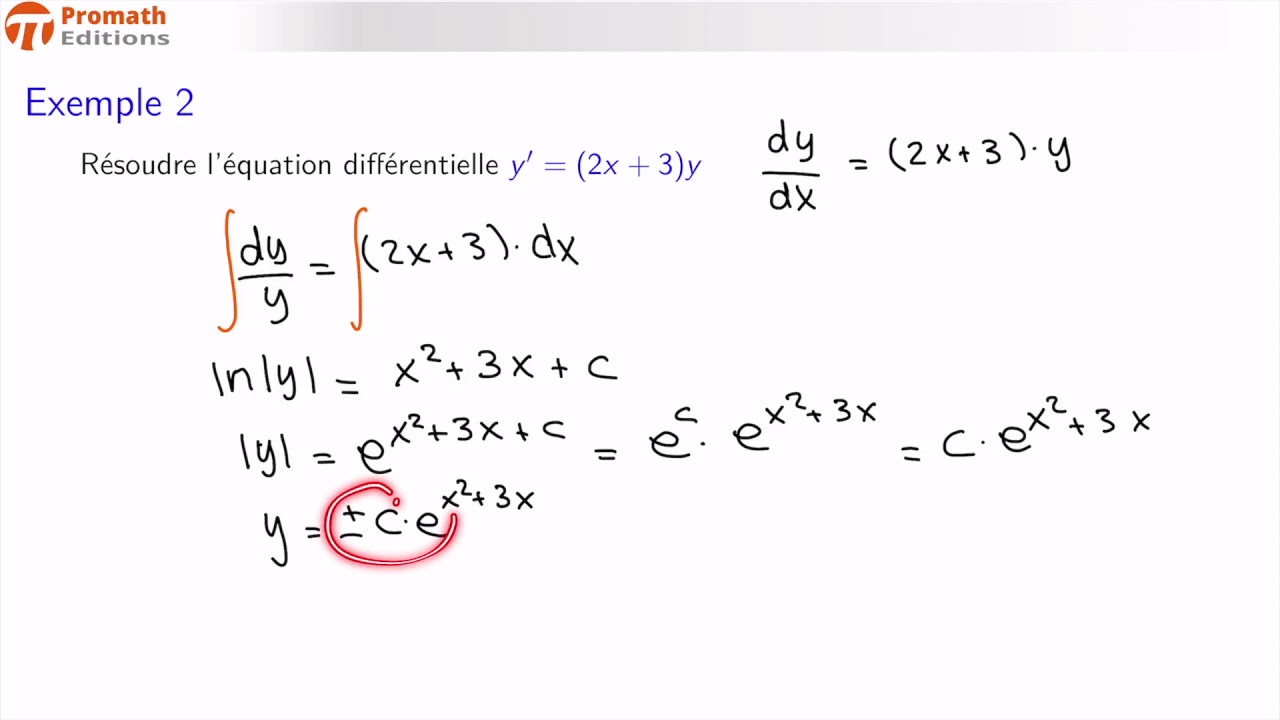 Promath
Editions
Exemple 2
Résoudre l'équation différentielle y' = (2x + 3)y
dy/dx = (2x+3)·y
∫ dy/y = ∫(2x+3)·dx
ln|y| = x²+3x+c
|y| = e^(x²+3x+c) = e^c · e^(x²+3x) = c·e^(x²+3x)
y = ±c·e^(x²+3x)